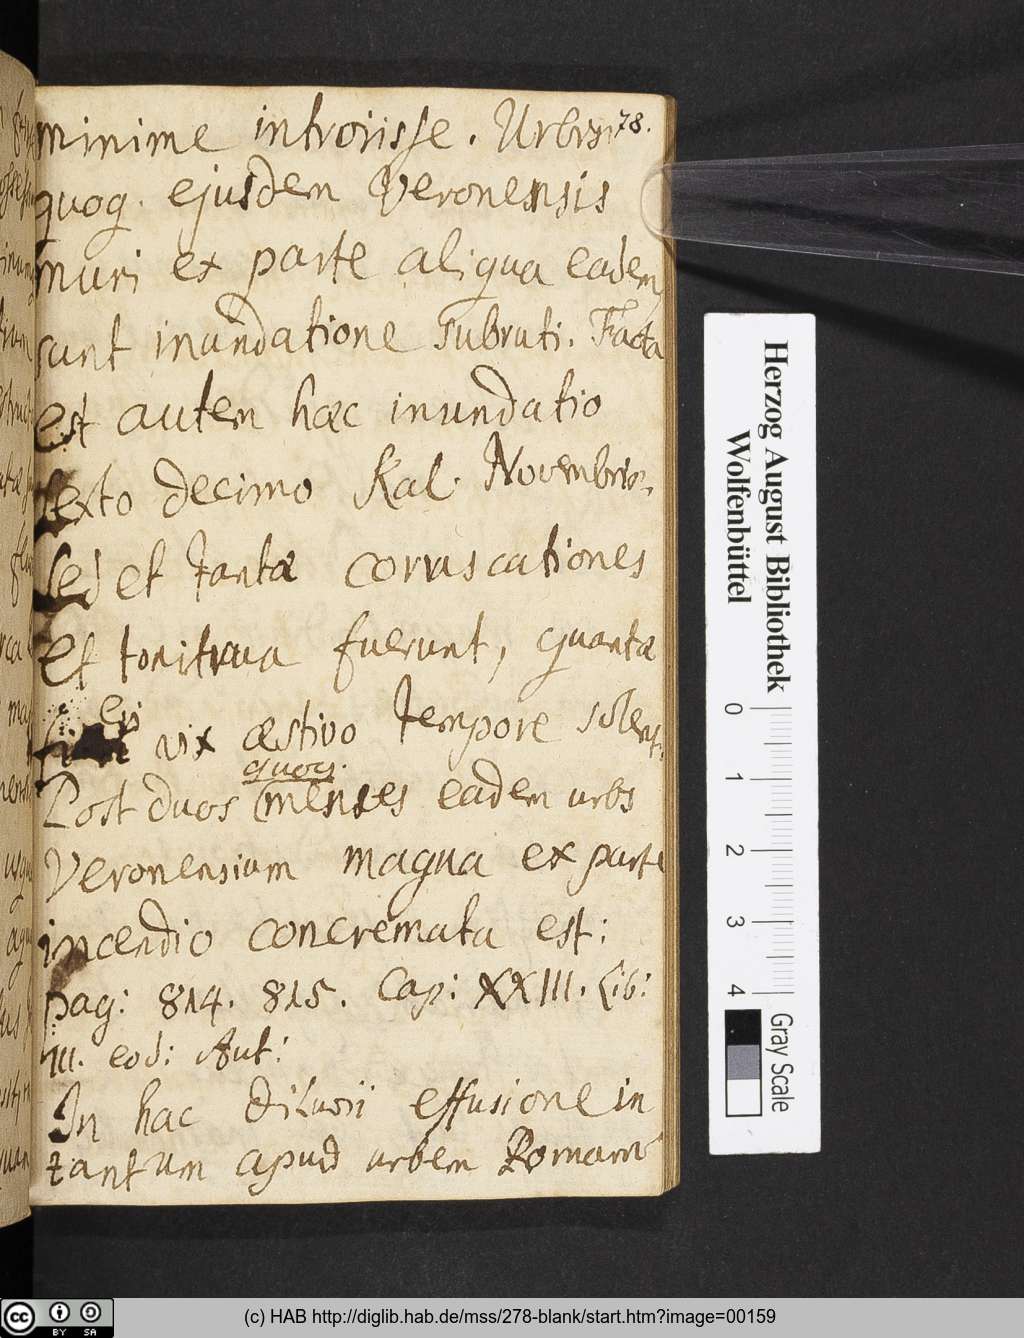 minime introiisse. Urbis 78.
quoq. ejusdem Veronensis
muri ex parte aliqua eadem
sunt inundatione subruti. Facta
est autem hæc inundatio
sexto decimo Kal. Novembris,
sed et tantæ corruscationes
et tonitrua fuerunt, quanta
eri
vix æstivo tempore solent.
quoq.
Post duos menses eadem urbs
Veronensium magna ex parte
incendio concremata est:
pag: 814. 815. Cap: XXIII. Lib:
III. eod: Aut:
In hac diluvii effusione in
tantum apud urbem Romam
Herzog August Bibliothek
Wolfenbüttel
0 1 2 3 4
Gray Scale
cc BY SA
(c) HAB http://diglib.hab.de/mss/278-blank/start.htm?image=00159